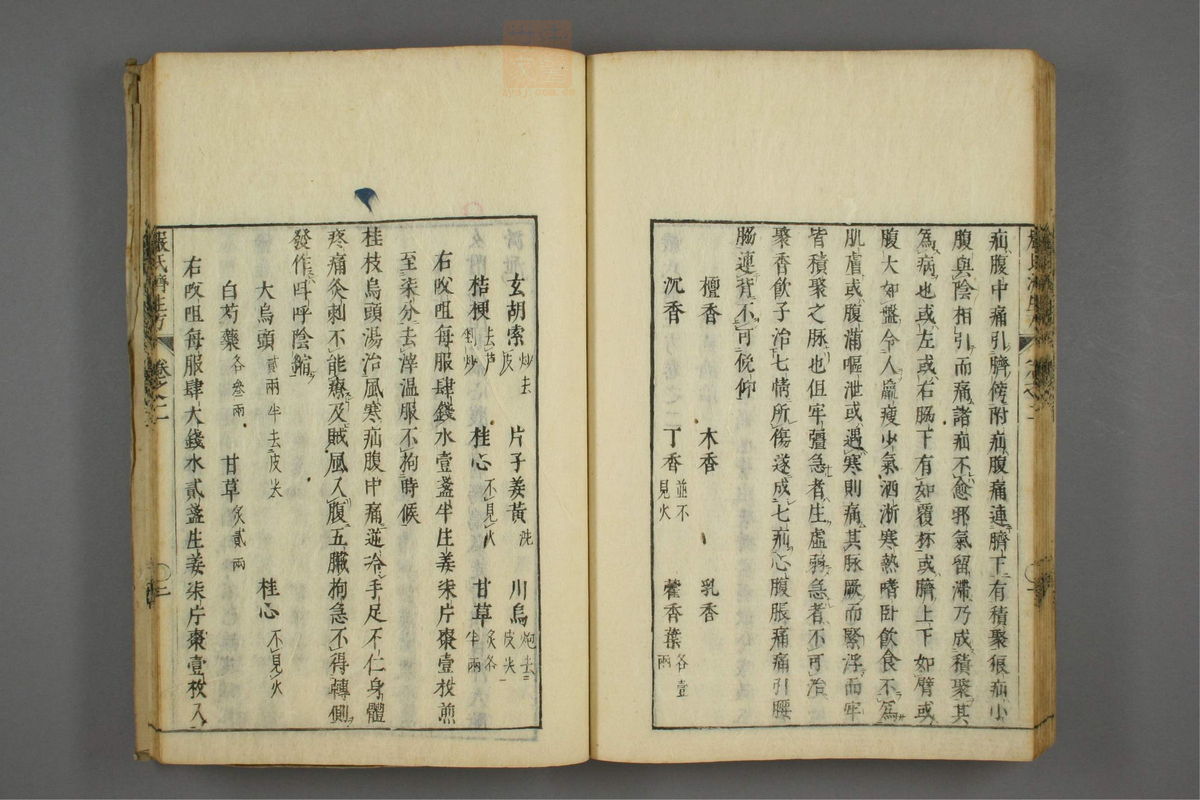 疝腹中痛引臍傍附疝腹痛連臍下有積聚狠疝小
腹與陰相引而痛諸疝不愈邪氣留滯乃成積聚其
為病也或左或右脇下有如覆杯或臍上下如臂或
腹大如盤令人羸瘦少氣洒淅寒熱嗜臥飲食不為
肌膚或腹滿嘔泄或遇寒則痛其脉厥而緊浮而牢
皆積聚之脉也但牢强急者生虛弱急者不可治
聚香飲子治七情所傷遂成七疝心腹脹痛痛引腰
脇連背不可俛仰
檀香 木香 乳香
沉香 丁香並不見火 藿香葉各壹兩
玄胡索炒去皮 片子姜黃洗 川烏炮去皮尖
桔梗去芦剉炒 桂心不見火 甘草炙各半兩
右㕮咀每服肆錢水壹盞半生姜柒片棗壹枚煎
至柒分去滓温服不拘時候
桂枝烏頭湯治風寒疝腹中痛逆冷手足不仁身體
疼痛灸刺不能療及賊風入腹五臟拘急不得轉側
發作呌呼陰縮
大烏頭貳兩半去皮尖 桂心不見火
白芍藥各叁兩 甘草炙貳兩
右㕮咀每服肆大錢水貳盞生姜柒片棗壹枚入
嚴氏濟生方 卷之二 二